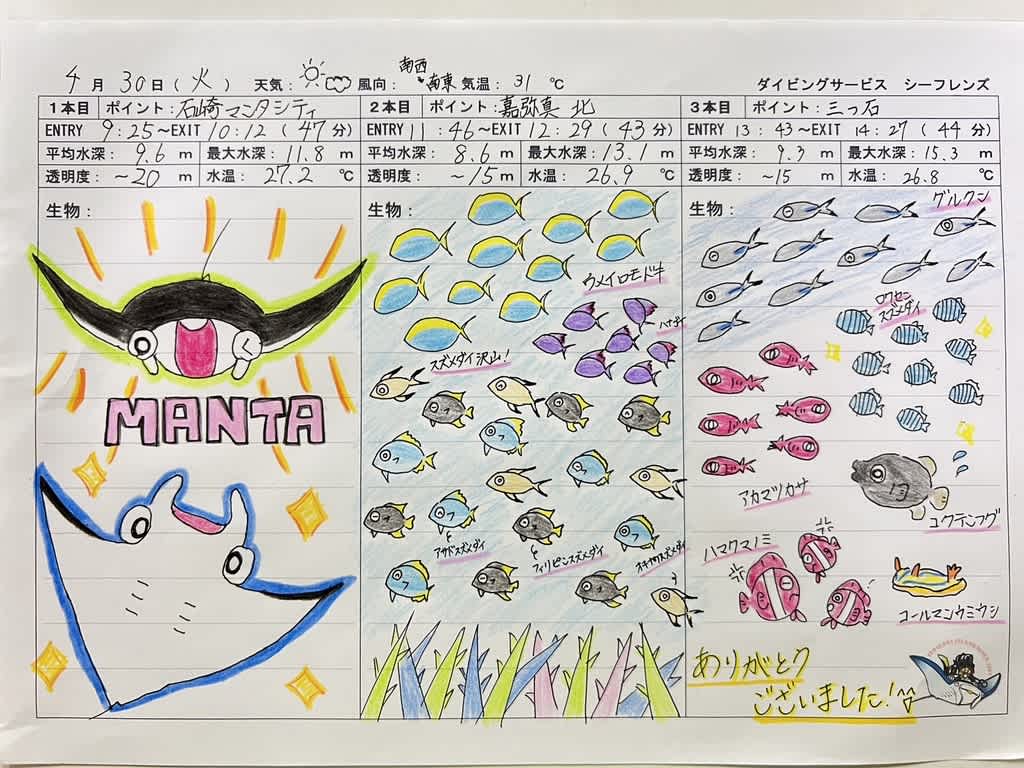 4月30日(火) 天気: 風向:南西 南東 気温:31℃ ダイビングサービス シーフレンズ
1本目 ポイント:石崎マンタシティ
ENTRY 9:25~EXIT 10:12(47分)
平均水深: 9.6 m 最大水深: 11.8 m
透明度: ~20 m 水温: 27.2 ℃
生物:
MANTA
2本目 ポイント:嘉弥真 北
ENTRY 11:46~EXIT 12:29(43分)
平均水深: 8.6 m 最大水深: 13.1 m
透明度: ~15 m 水温: 26.9 ℃
生物:
ウメイロモドキ
ハナゴイ
スズメダイ沢山!
アサドスズメダイ
と
フィリピンスズメダイ
と
オキナワスズメダイ
3本目 ポイント:三つ石
ENTRY 13:43~EXIT 14:27(44分)
平均水深: 9.3 m 最大水深: 15.3 m
透明度: ~15 m 水温: 26.8 ℃
生物:
グルクン
ロクセン
スズメダイ
アカマツカサ
コクテンフグ
ハマクマノミ
コールマンウミウシ
ありがとう
ございました!